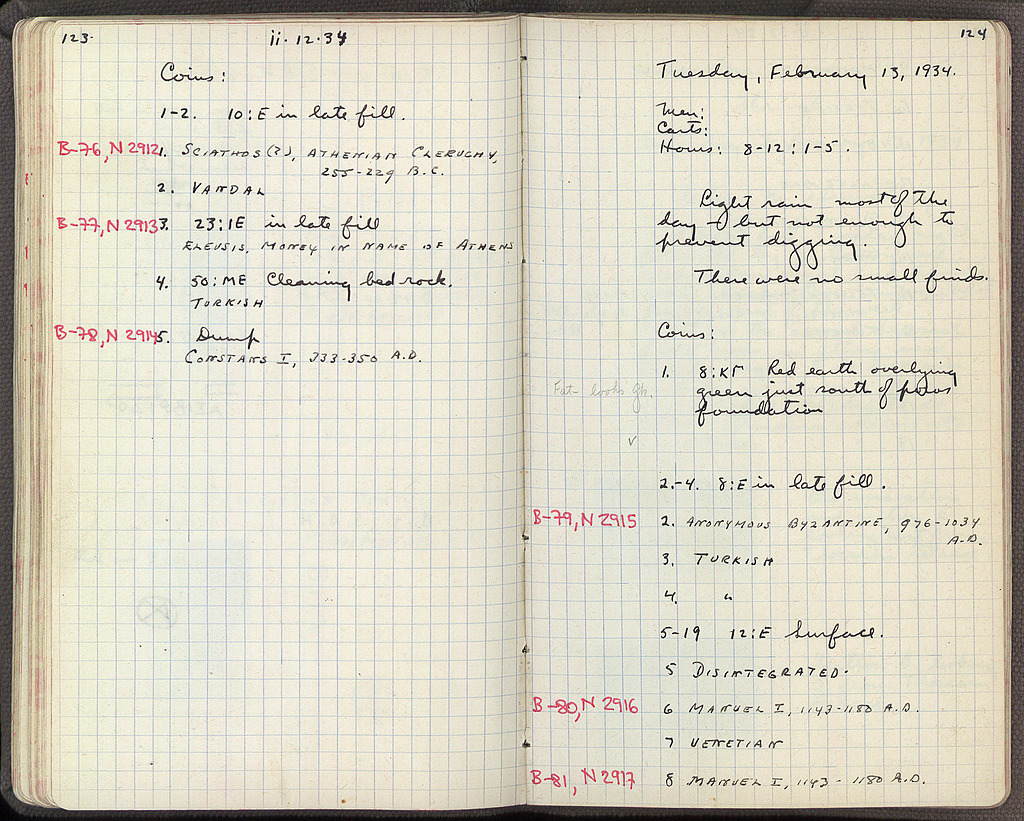 123.
ii. 12. 34
Coins:
1-2. 10:E in late fill.
B-76, N 2912 1. SCIATHOS(?), ATHENIAN CLERUCHY,
255-229 B.C.
2. VANDAL
B-77, N 2913 3. 23:IE in late fill
ELEUSIS, MONEY IN NAME OF ATHENS
4. 50:ME Cleaning bed rock.
TURKISH
B-78, N 2914 5. Dump
CONSTANS I, 333-350 A.D.
124
Tuesday, February 13, 1934.
Men:
Carts:
Hours: 8-12 : 1-5.
Light rain most of the
day - but not enough to
prevent digging.
There were no small finds.
Coins:
1. 8:ΚΓ Red earth overlying
green just south of poros
foundation
Fat- looks Gk.
v
2.-4. 8:E in late fill.
B-79, N 2915 2. ANONYMOUS BYZANTINE, 976-1034
A.D.
3. TURKISH
4. "
5-19 12:E Surface.
5 DISINTEGRATED.
B-80, N 2916 6 MANUEL I, 1143-1180 A.D.
7 VENETIAN
B-81, N 2917 8 MANUEL I, 1143-1180 A.D.